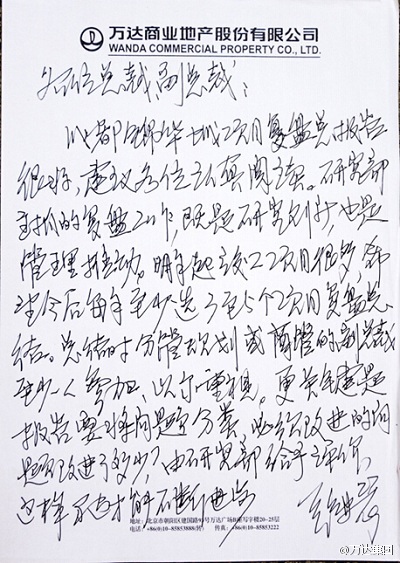 万达商业地产股份有限公司
WANDA COMMERCIAL PROPERTY CO., LTD.
各位总裁副总裁：
成都锦华城项目复盘总报告
很好，建议各位认真阅读。研究部
主抓的复盘工作，既是研究创新，也是
管理推动。明年起项目很多，希
望今后每年至少选3至5个项目复盘总
结。总结时分管规划或商管的副总裁
至少一人参加，以示重视。更关键是
报告要将问题分类，必须改进的问
题改进了多少？由研究部给予评价，
这样万达才能不断进步
地址：北京市朝阳区建国路93号万达广场B座写字楼20-25层
电话：+86(0)10-85853888 传真：+86(0)10-85853222
@万达集团